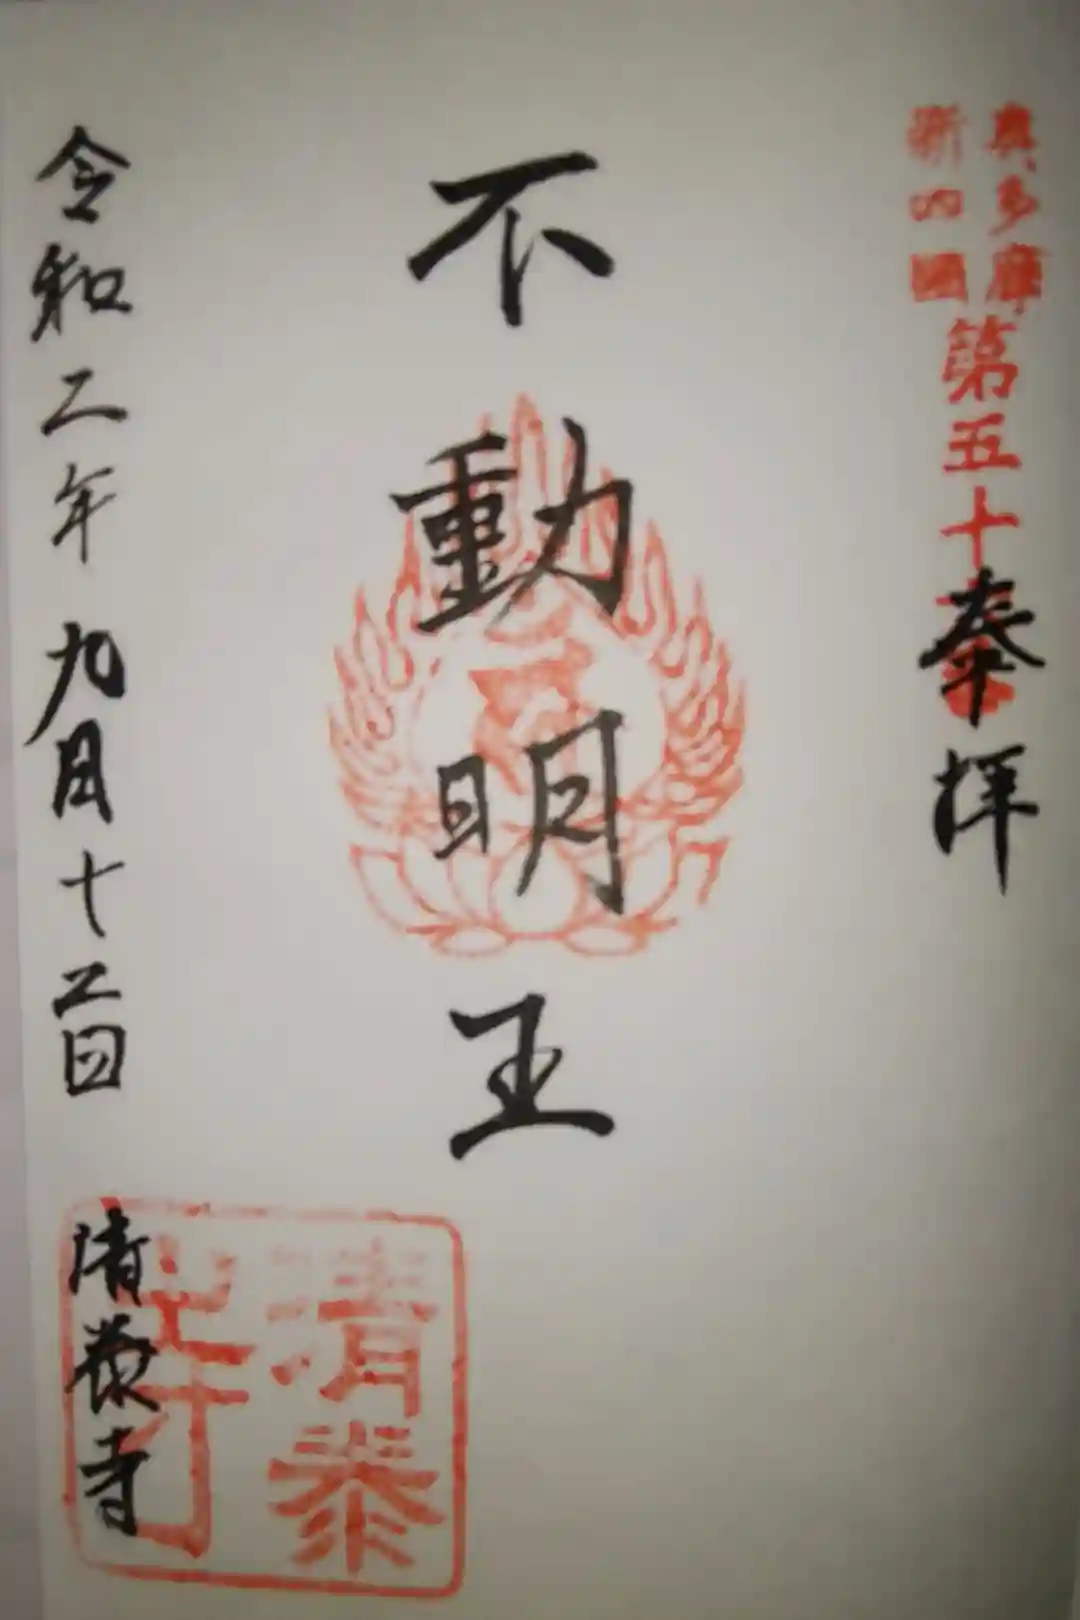 奥多摩
新四國
第五十
奉拝
不動明王
令和二年九月十二日
清泰寺
清泰寺